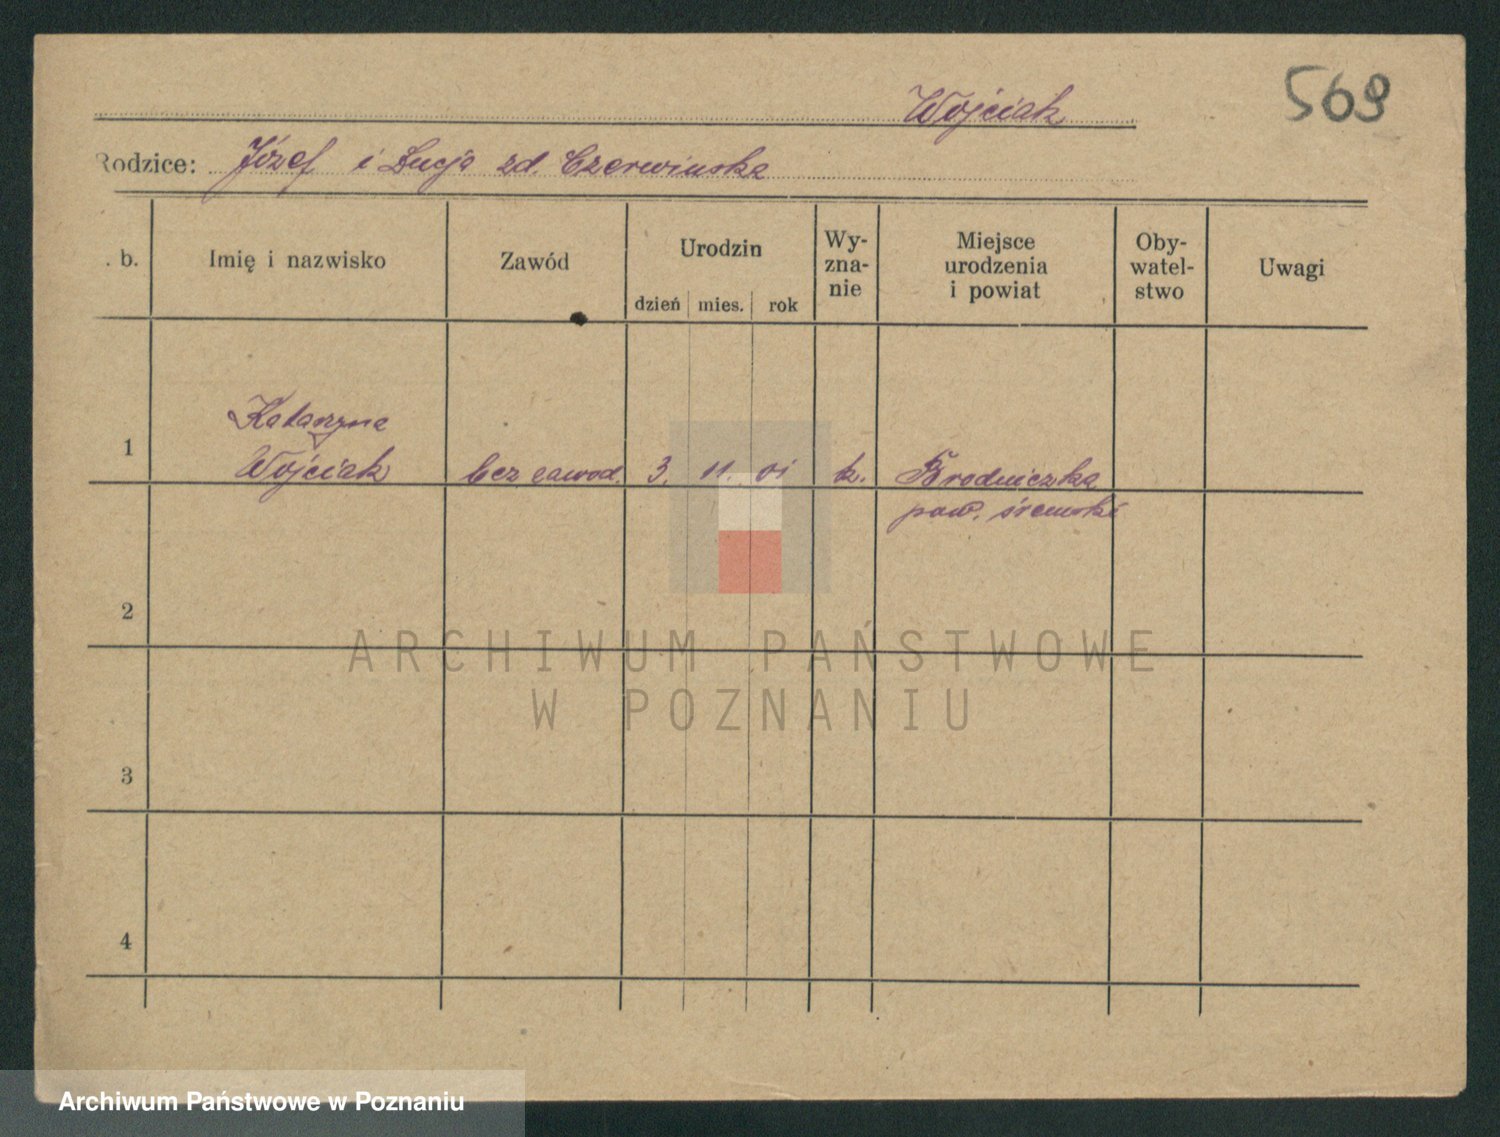 569
Wojciak
Rodzice: Józef i Łucja zd. Czerwińska
. b.
Imię i nazwisko
Zawód
Urodzin
dzień mies. rok
Wy-
zna-
nie
Miejsce
urodzenia
i powiat
Oby-
watel-
stwo
Uwagi
1
Katarzyna
Wojciak
bez zawod.
3. 11. 01
k.
Brodniczka
pow. śremski
2
3
4
ARCHIWUM PAŃSTWOWE
W POZNANIU
Archiwum Państwowe w Poznaniu